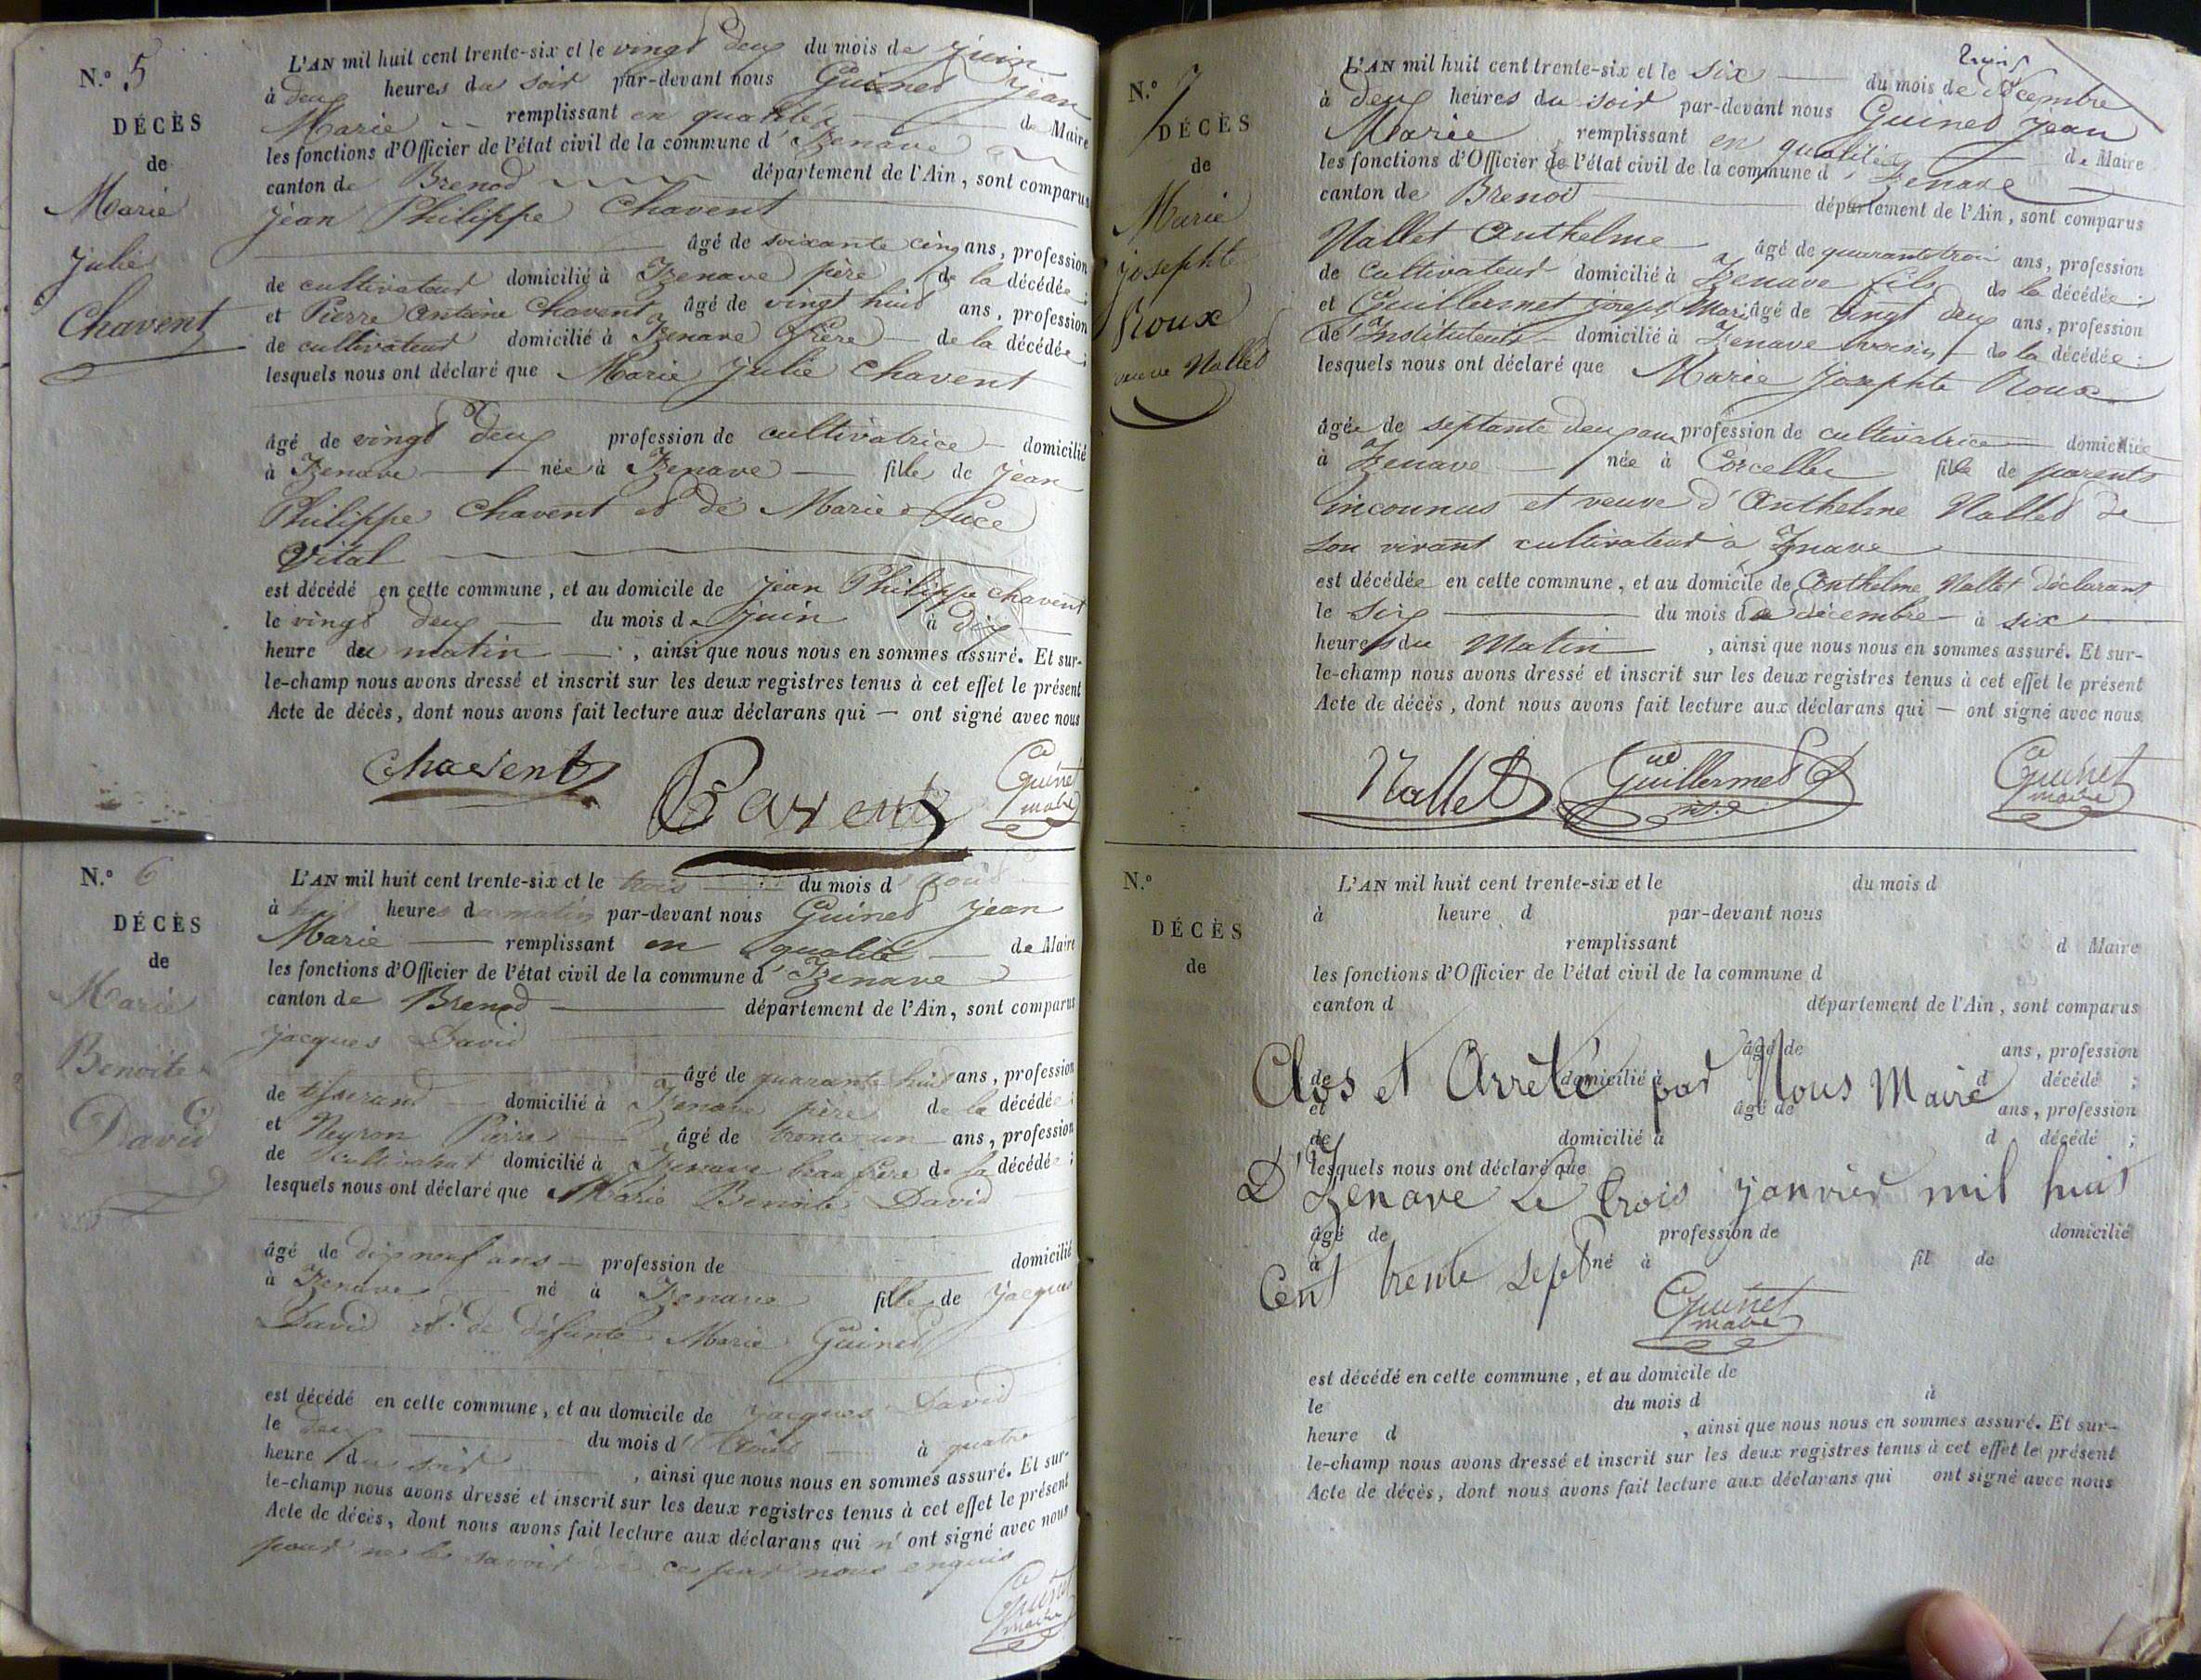 N.° 5
DÉCÈS
de
Marie
Julie
Chavent
L'AN mil huit cent trente-six et le vingt deux du mois de juin
à deux heures du soir par-devant nous Guinet Jean
Marie remplissant en qualité de Maire
les fonctions d'Officier de l'état civil de la commune d'Izenave
canton de Brenod département de l'Ain, sont comparus
Jean Philippe Chavent
âgé de soixante cinq ans, profession
de cultivateur domicilié à Izenave père de la décédée ;
et Pierre Antoine Chavent âgé de vingt huit ans, profession
de cultivateur domicilié à Izenave frère de la décédée ;
lesquels nous ont déclaré que Marie Julie Chavent
âgé de vingt deux profession de cultivatrice domicilié
à Izenave née à Izenave fille de Jean
Philippe Chavent et de Marie Luce
Vital
est décédé en cette commune, et au domicile de Jean Philippe Chavent
le vingt deux du mois de juin à dix
heure du matin , ainsi que nous nous en sommes assuré. Et sur-
le-champ nous avons dressé et inscrit sur les deux registres tenus à cet effet le présent
Acte de décès, dont nous avons fait lecture aux déclarans qui — ont signé avec nous
Chavent
Guinet
maire
N.° 6
DÉCÈS
de
Marie
Benoite
David
L'AN mil huit cent trente-six et le trois du mois d'août
à huit heures du matin par-devant nous Guinet Jean
Marie remplissant en qualité de Maire
les fonctions d'Officier de l'état civil de la commune d'Izenave
canton de Brenod département de l'Ain, sont comparus
Jacques David
âgé de quarante huit ans, profession
de tisserand domicilié à Izenave père de la décédée ;
et Neyron Pierre âgé de trente un ans, profession
de cultivateur domicilié à Izenave beau frère de la décédée ;
lesquels nous ont déclaré que Marie Benoite David
âgé de dix neuf ans profession de domicilié
à Izenave né à Izenave fille de Jacques
David et de défunte Marie Guinet
est décédé en cette commune, et au domicile de Jacques David
le deux du mois d'août à quatre
heure du soir , ainsi que nous nous en sommes assuré. Et sur-
le-champ nous avons dressé et inscrit sur les deux registres tenus à cet effet le présent
Acte de décès, dont nous avons fait lecture aux déclarans qui n'ont signé avec nous
pour ne le savoir de ce par nous enquis
Guinet
maire
N.° 7
DÉCÈS
de
Marie
Josephte
Roux
veuve Nallet
L'AN mil huit cent trente-six et le six du mois de décembre
à deux heures du soir par-devant nous Guinet Jean
Marie remplissant en qualité de Maire
les fonctions d'Officier de l'état civil de la commune d'Izenave
canton de Brenod département de l'Ain, sont comparus
Nallet Anthelme âgé de quarante trois ans, profession
de cultivateur domicilié à Izenave fils de la décédée ;
et Guillermet Joseph Marie âgé de vingt deux ans, profession
de Instituteur domicilié à Izenave voisin de la décédée ;
lesquels nous ont déclaré que Marie Josephte Roux
âgée de septante deux ans profession de cultivatrice domiciliée
à Izenave née à Corcelle fille de parents
inconnus et veuve d'Anthelme Nallet de
son vivant cultivateur à Izenave
est décédée en cette commune, et au domicile de Anthelme Nallet déclarant
le six du mois de décembre à six
heures du Matin , ainsi que nous nous en sommes assuré. Et sur-
le-champ nous avons dressé et inscrit sur les deux registres tenus à cet effet le présent
Acte de décès, dont nous avons fait lecture aux déclarans qui — ont signé avec nous
Nallet Guillermet Guinet
maire
N.°
DÉCÈS
de
L'AN mil huit cent trente-six et le du mois d
à heure d par-devant nous
remplissant d Maire
les fonctions d'Officier de l'état civil de la commune d
canton d département de l'Ain, sont comparus
âgé de ans, profession
de domicilié à d décédé ;
Clos et Arreté par Nous Maire
et âgé de ans, profession
de domicilié à d décédé ;
lesquels nous ont déclaré que
D'Izenave Le trois janvier mil huit
âgé de profession de domicilié
à né à fil de
Cent trente sept
Guinet
maire
est décédé en cette commune, et au domicile de
le du mois d à
heure d , ainsi que nous nous en sommes assuré. Et sur-
le-champ nous avons dressé et inscrit sur les deux registres tenus à cet effet le présent
Acte de décès, dont nous avons fait lecture aux déclarans qui ont signé avec nous